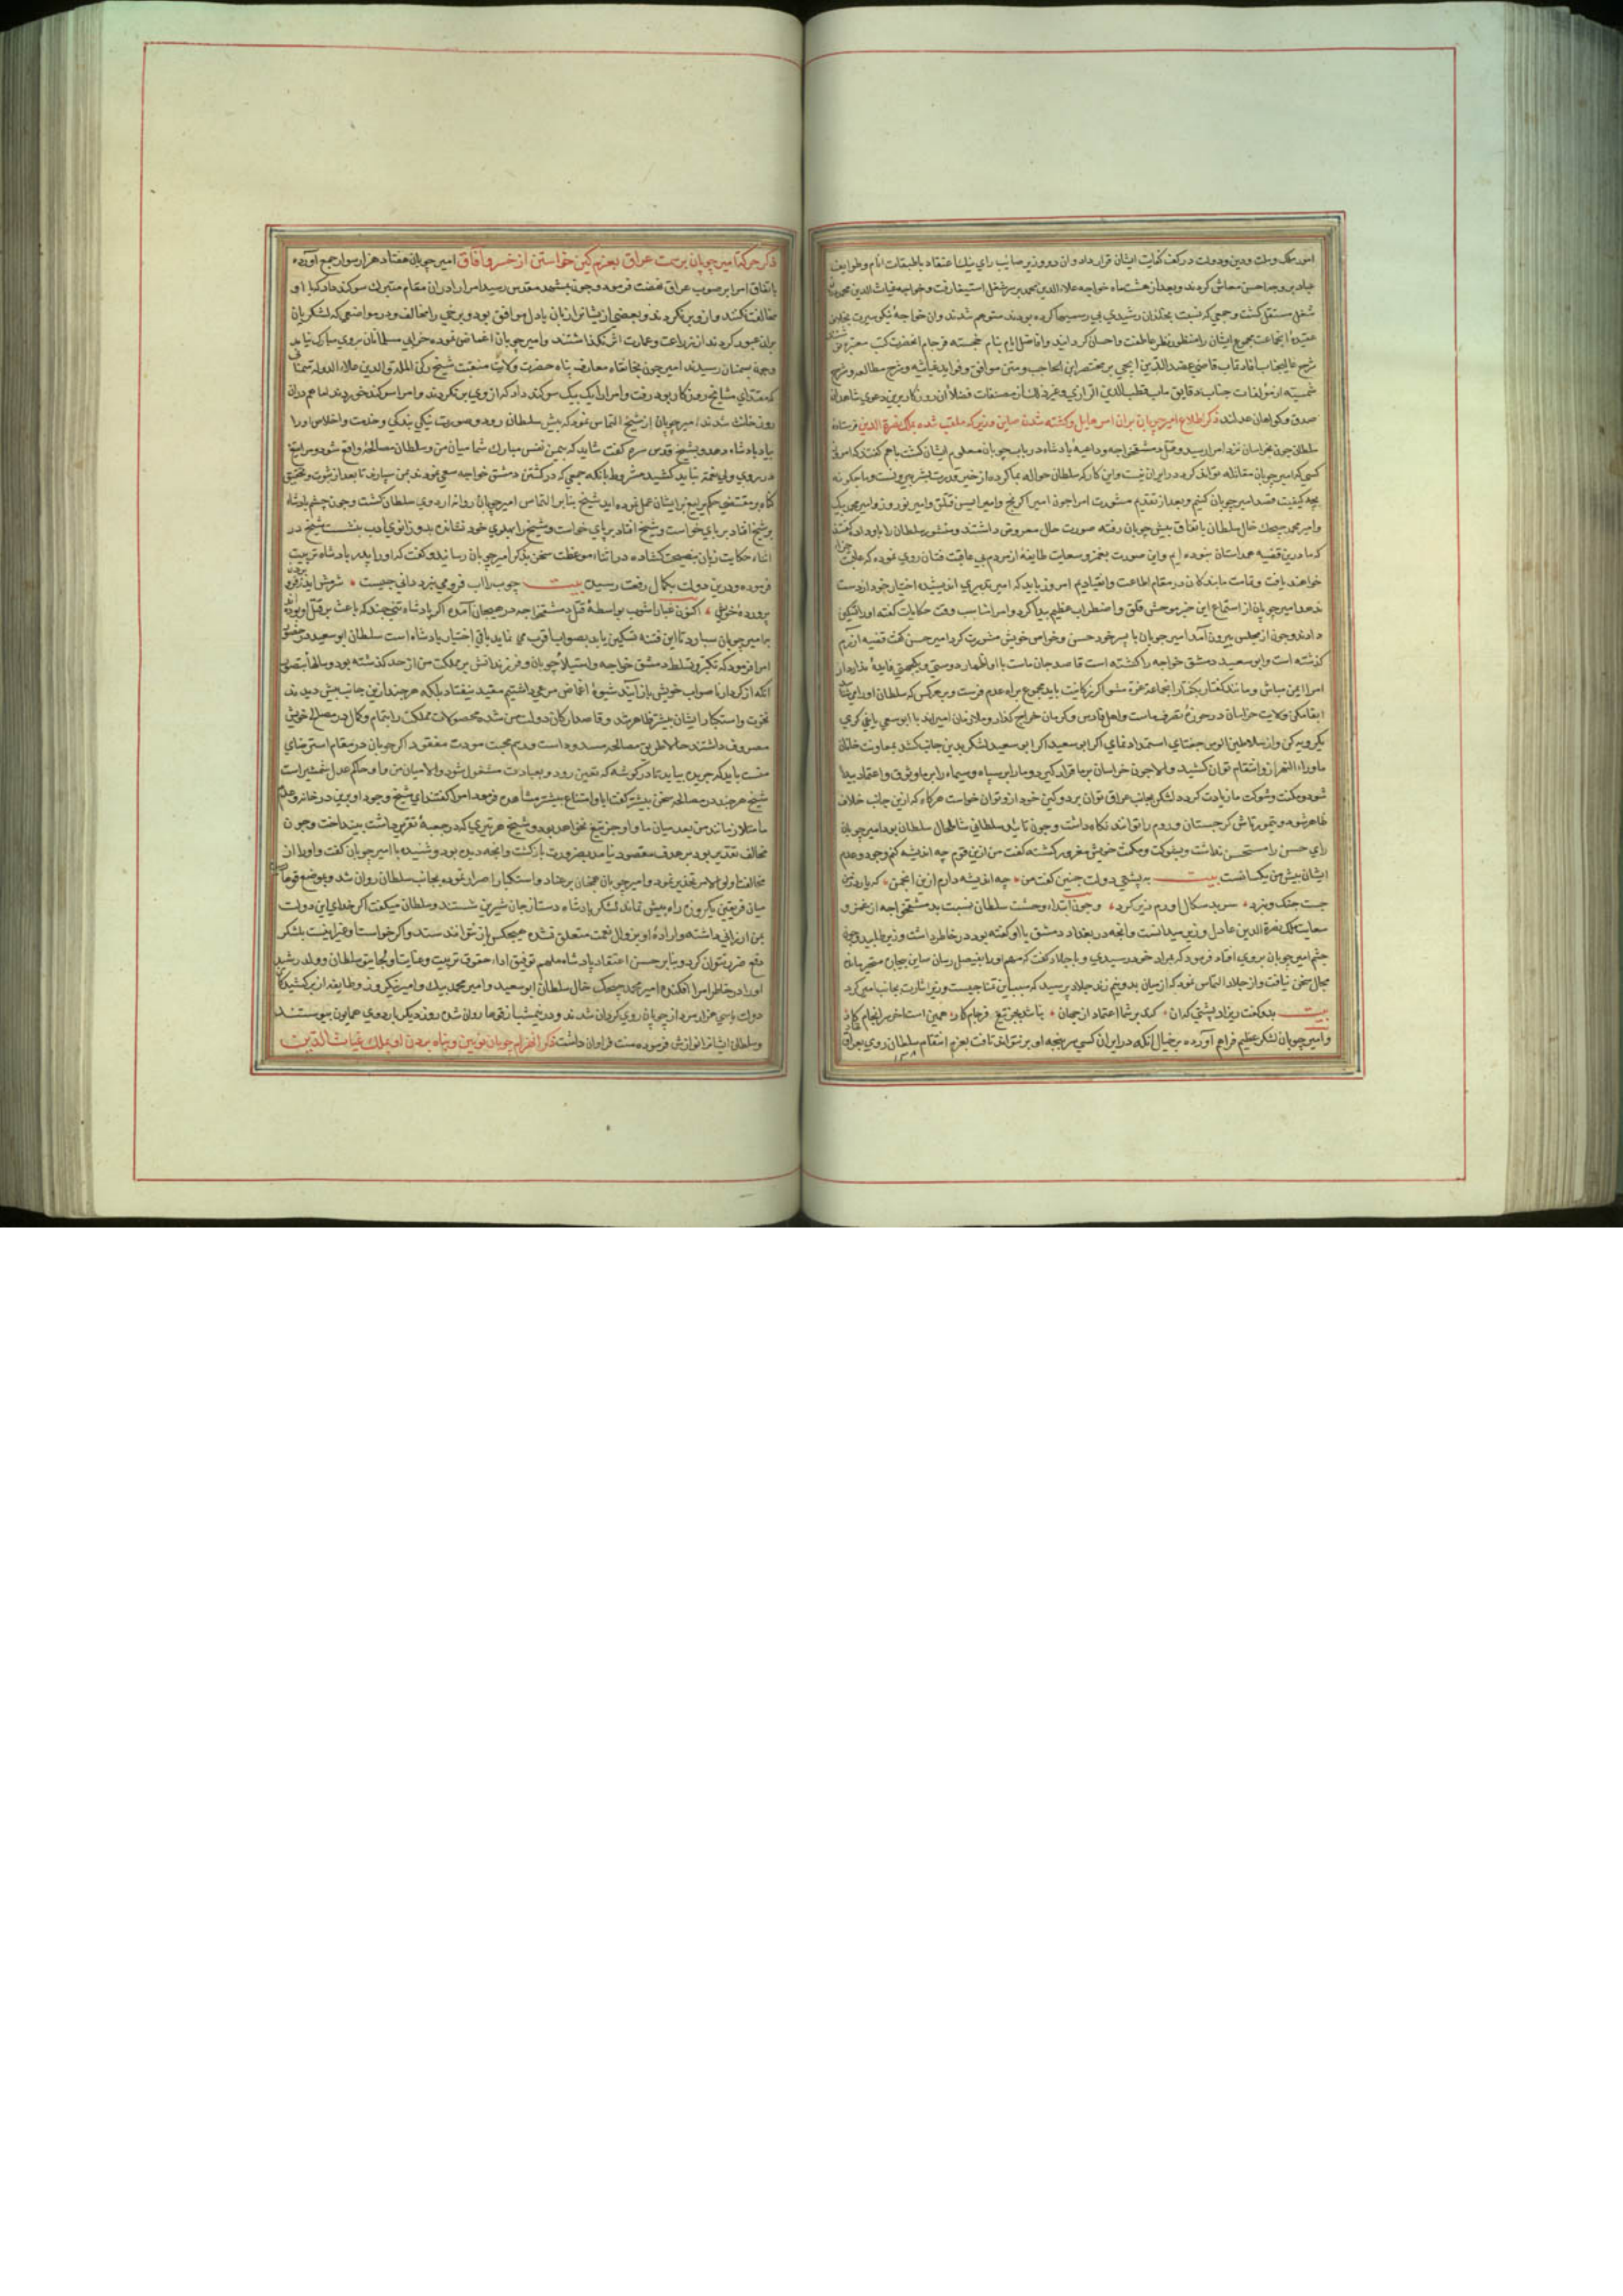 امور ملک و ملت و دین و دولت در کف کفایت ایشان قرار داد و آن دو وزیر صایب رای نیک اعتقاد با طبقات انام و طوایف
عباد بر وجه احسن معاش کردند و بعد از هشت ماه خواجه علاء الدین محمد بر سر شغل استیفا رفت و خواجه غیاث الدین محمد
شغل مستقل کشت و جمعی که نسبت بخاندان رشیدی بی رسمیها کرده بودند متوهم شدند و ان خواجهٔ نیکو سیرت
مجموع ایشان را منظور نظر عاطفت و احسان کردانید و افاضل ایام بنام خجسته فرجام آنحضرت کتب معتبره
شرح قاضی عضد الدین ایجی بر مختصر ابن الحاجب و متن مواقف و فواید غیاثیه و شرح مطالع و شرح
شمسیه از مؤلفات جناب قطب الدین الرازی و غیر ذلک از مصنفات فضلاء ان روزکار برین دعوی شاهدان
صدق و کواهان عدلند ذکر اطلاع امیر چوبان بران امر هایل و کشته شدن صاین وزیر که ملقب شده بملک نصرة الدین فرستاده
سلطان چون بخراسان نزد امرا رسید و قتل دمشق خواجه و داعیهٔ پادشاه در باب چوبان معلوم ایشان کشت با هم کفتند که امروز
کسی که با امیر چوبان مقابله تواند کرد در ایران نیست و این کار که سلطان حواله بما کرده از حیز قدرت بشر بیرونست و ما چکونه
بچه کیفیت قصد امیر چوبان کنیم و بعد از تقدیم مشورت امرا چون امیر اکرنج و امیر ایسن قتلق و امیر نوروز و امیر محمد بیک
و امیر محمد بیجک خال سلطان باتفاق پیش چوبان رفته صورت حال معروض داشتند و منشور سلطان را باو داده کفتند
که ما درین قضیه همداستان نبوده ایم و این صورت بغمز و سعایت طایفهٔ از مردم بی عاقبت فتان روی نموده که عاقبت
خواهند یافت و ما بندکان در مقام اطاعت و انقیادیم امروز باید که امیر تدبیری اندیشیده اختیار خود از دست
ندهد امیر چوبان از استماع این خبر موحش قلق و اضطراب عظیم پیدا کرد و امرا مناسب وقت حکایات کفته اورا تسکین
دادند و چون از مجلس بیرون آمد امیر چوبان با پسر خود حسن و خواص خویش مشورت کرد امیر حسن کفت قضیه از رم
کذشته است و ابو سعید دمشق خواجه را کشته است قاصد جان ماست با او اظهار دوستی و یکجهتی فایدهٔ ندارد از
امرا ایمن مباش و مانند کفتار بکفتار انجماعت غره مشو اکر زکانیت باید مجموع براه عدم فرست و هر کس که سلطان او را
ابقا مکن ولایت خراسان در حوزهٔ تصرف ماست و اهل فارس و کرمان خراج کذار و ملازمان امیراند با ابو سعید یاغی کری
یکرویه کن و از سلاطین الوس جغتای استمداد نمای اکر ابو سعید لشکر بدین جانب کشد بمعاونت خانان
ماوراء النهر ازو انتقام توان کشید و الا چون خراسان بر ما قرار کیرد و مارا بر سپاه و سپاه را بر ما وثوق و اعتماد پیدا
شود و مکنت و شوکت ما زیادت کردد لشکر بجانب عراق توان برد و کین خود ازو توان خواست هرکاه که ازین جانب خلاف
ظاهر شود و تیمورتاش کرجستان و روم را تواند نکاه داشت و چون تایید سلطانی شامل حال سلطان بود امیر چوبان
رای حسن را مستحسن نداشت و بشوکت و مکنت خویش مغرور کشته کفت من ازین قوم چه اندیشه کنم وجود و عدم
ایشان پیش من یکسانست بیت به پشتی دولت چنین کفت من چه اندیشه دارم ازین انجمن که یارد
جست جنک و نبرد سر بد سکال اورم زیر کرد و چون ابتداء وحشت سلطان نسبت بدمشق خواجه از غمز و
سعایت ملک نصرة الدین عادل وزیر میدانست و آنچه در بغداد دمشق با او کفته بود در خاطر داشت وزیر طلبید و چون
چشم امیر چوبان بروی افتاد فرمود که بمراد خود رسیدی و با جلاد کفت که مهم او را بفیصل رسان صاین حیران متحیر بماند
مجال سخن نیافت و از جلاد التماس نمود که از میان بدو نیم زند جلاد پرسید که سبب این تمنا چیست وزیر اشارت بجانب امیر کرد
بیت بدو کفت زینار پشتی که ان کند بر شما اعتماد از جهان نباشد بجز تیغ فرجام کار همین است آخر سرانجام کار
و امیر چوبان لشکر عظیم فراهم آورده بر خیال آنکه در ایران کسی سر پنجه او بر نتواند تافت بعزم انتقام سلطان روی بعراق
ذکر حرکت امیر چوبان بر سمت عراق بعزم کین خواستن از خسرو آفاق امیر چوبان هفتاد هزار سوار جمع آورده
باتفاق امرا بر صوب عراق نهضت فرمود و چون بمشهد مقدس رسید امرا را دران مقام متبرک سوکند داد که با او
مخالفت نکنند و ازو برنکردند و بعضی از ایشانرا زبان با دل موافق بود و برخی را مخالف و در مواضعی که لشکریان
بران عبور کردند از زراعت و عمارت اثر نکذاشتند و امیر چوبان اغماض نموده خرابی مسلمانان بروی مبارک نیامد
و چون بسمنان رسیدند امیر چون بخانقاه معارف پناه حضرت ولایت منقبت شیخ رکن الملة و الدین علاء الدوله سمنانی
که مقتدای مشایخ روزکار بود رفت و امرا را یک بیک سوکند داد که از وی برنکردند و امرا سوکند خوردند اما هم دران
روز خلف شدند امیر چوبان از شیخ التماس نمود که پیش سلطان رود و صورت نیکی بندکی و خدمت و اخلاص او را
بیاد پادشاه دهد و شیخ قدس سره کفت شاید که بیمن نفس مبارک شما میان من و سلطان مصالحه واقع شود و مرا تیغ
در روی ولی نعمت نباید کشید مشروط بانکه جمعی که در کشتن دمشق خواجه سعی نمودند بمن سپارد تا بعد از ثبوت و تحقیق
کناه بر مقتضی حکم یرلیغ با ایشان عمل نموده آید شیخ بنا بر التماس امیر چوبان روانه اردوی سلطان کشت و چون چشم پادشاه
بر شیخ افتاد بر پای خواست و شیخ را پهلوی خود نشاند بدو زانوی ادب بنشست شیخ در
اثناء حکایت زبان بنصیحت کشاده در اثناء موعظت سخن بذکر امیر چوبان رسانید و کفت که او را پدر پادشاه تربیت
فرموده و درین دولت بکمال رفعت رسید بیت چوب را آب فرو می نبرد دانی چیست شرمش آید ز فرو بردن
پرورده خویش اکنون غبار آشوب بواسطهٔ قتل دمشق خواجه در هیجان آمده اکر پادشاه تنی چند که باعث بر قتل او بوده اند
به امیر چوبان سپارد تا این فتنه تسکین یابد بصواب اقرب می نماید باقی اختیار پادشاه است سلطان ابو سعید در حق
امرا فرمود که تکبر و تسلط دمشق خواجه و استیلاء چوبان و فرزندانش بر مملکت من از حد کذشته بود و سلطان بتصور
آنکه از کردار ناصواب خویش باز آیند شیوهٔ اغماض مرعی داشتیم مفید نیفتاد بلکه هر چند ازین جانب بیش دیدند
نخوت و استکبار ایشان بیشتر ظاهر شد و قاصد ارکان دولت من شده محصولات مملکت را بتمام و کمال در مصالح خویش
مصروف داشتند حالا طریق مصالحه مسدود است و رسم محبت مودت مفقود اکر چوبان در مقام استرضای
منست باید که جریده بیاید تا در کوشه که تعیین رود بعبادت مشغول شود و الا میان من و او حاکم عدل شمشیر است
شیخ هر چند در مصالحه سخن بیشتر کفت ابا و امتناع بیشتر مشاهده فرمود امرا کفتند ای شیخ وجود او برین در خانه و عدم
ما متلازمانند من بعد میان ما و او جز تیغ نخواهد بود و شیخ هر تیری که در جعبهٔ تقریر داشت بینداخت و چون
مخالف تقدیر بود بر هدف مقصود نیامد بضرورت بازکشت و آنچه دیده بود و شنیده با امیر چوبان کفت و او را از
مخالفت اولو الامر تحذیر نمود و امیر چوبان همچنان بر عناد و استکبار اصرار نموده بجانب سلطان روان شد و بموضع قوها
میان فریقین یکروزه راه بیش نماند لشکر پادشاه دست از جان شیرین شستند و سلطان میکفت اکر خدای این دولت
بمن ارزانی داشته و ارادهٔ او بزوال نعمت متعلق نشده هیچکس از من نتواند ستد و اکر خواست او غیر اینست بلشکر
دفع ضرر نتوان کرد و بنا بر حسن اعتقاد پادشاه ملهم توفیق اداء حقوق تربیت و عنایت اولجایتو سلطان و ولد رشید
او را در خاطر امرا افکند و امیر محمد بیجک خال سلطان ابو سعید و امیر محمد بیک و امیر نیکروز و طایفه از برکشیدکان
دولت با سی هزار مرد از چوبان روی کردان شدند و در نیمشب از قوها روان شده روز دیکر باردوی همایون پیوستند
و سلطان ایشانرا نوازش فرموده منت فراوان داشت ذکر انهزام چوبان نویین و پناه بردن او بملک غیاث الدین